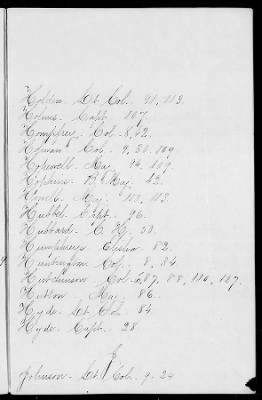 Holden - Lt Col. 90, 113.
Holmes - Capt. 107.
Homphrey - Col - 8, 42.
Col. 9, 30, 109
Hopewell - Maj. 94, 109.
Hopkins - B. Maj. 43.
Howell - Maj. 110, 113.
Hubbel - Capt. 96.
Hubbard - 30.
Humphreys 82.
Huntington Col. - 8, 84
Hutchinson Col - 6, 87, 88, 110, 107.
Hutton Maj. 86.
Hyde - Lt Col. 84
Hyde - Capt. 28
J
Johnson - Lt Col. 9 - 24